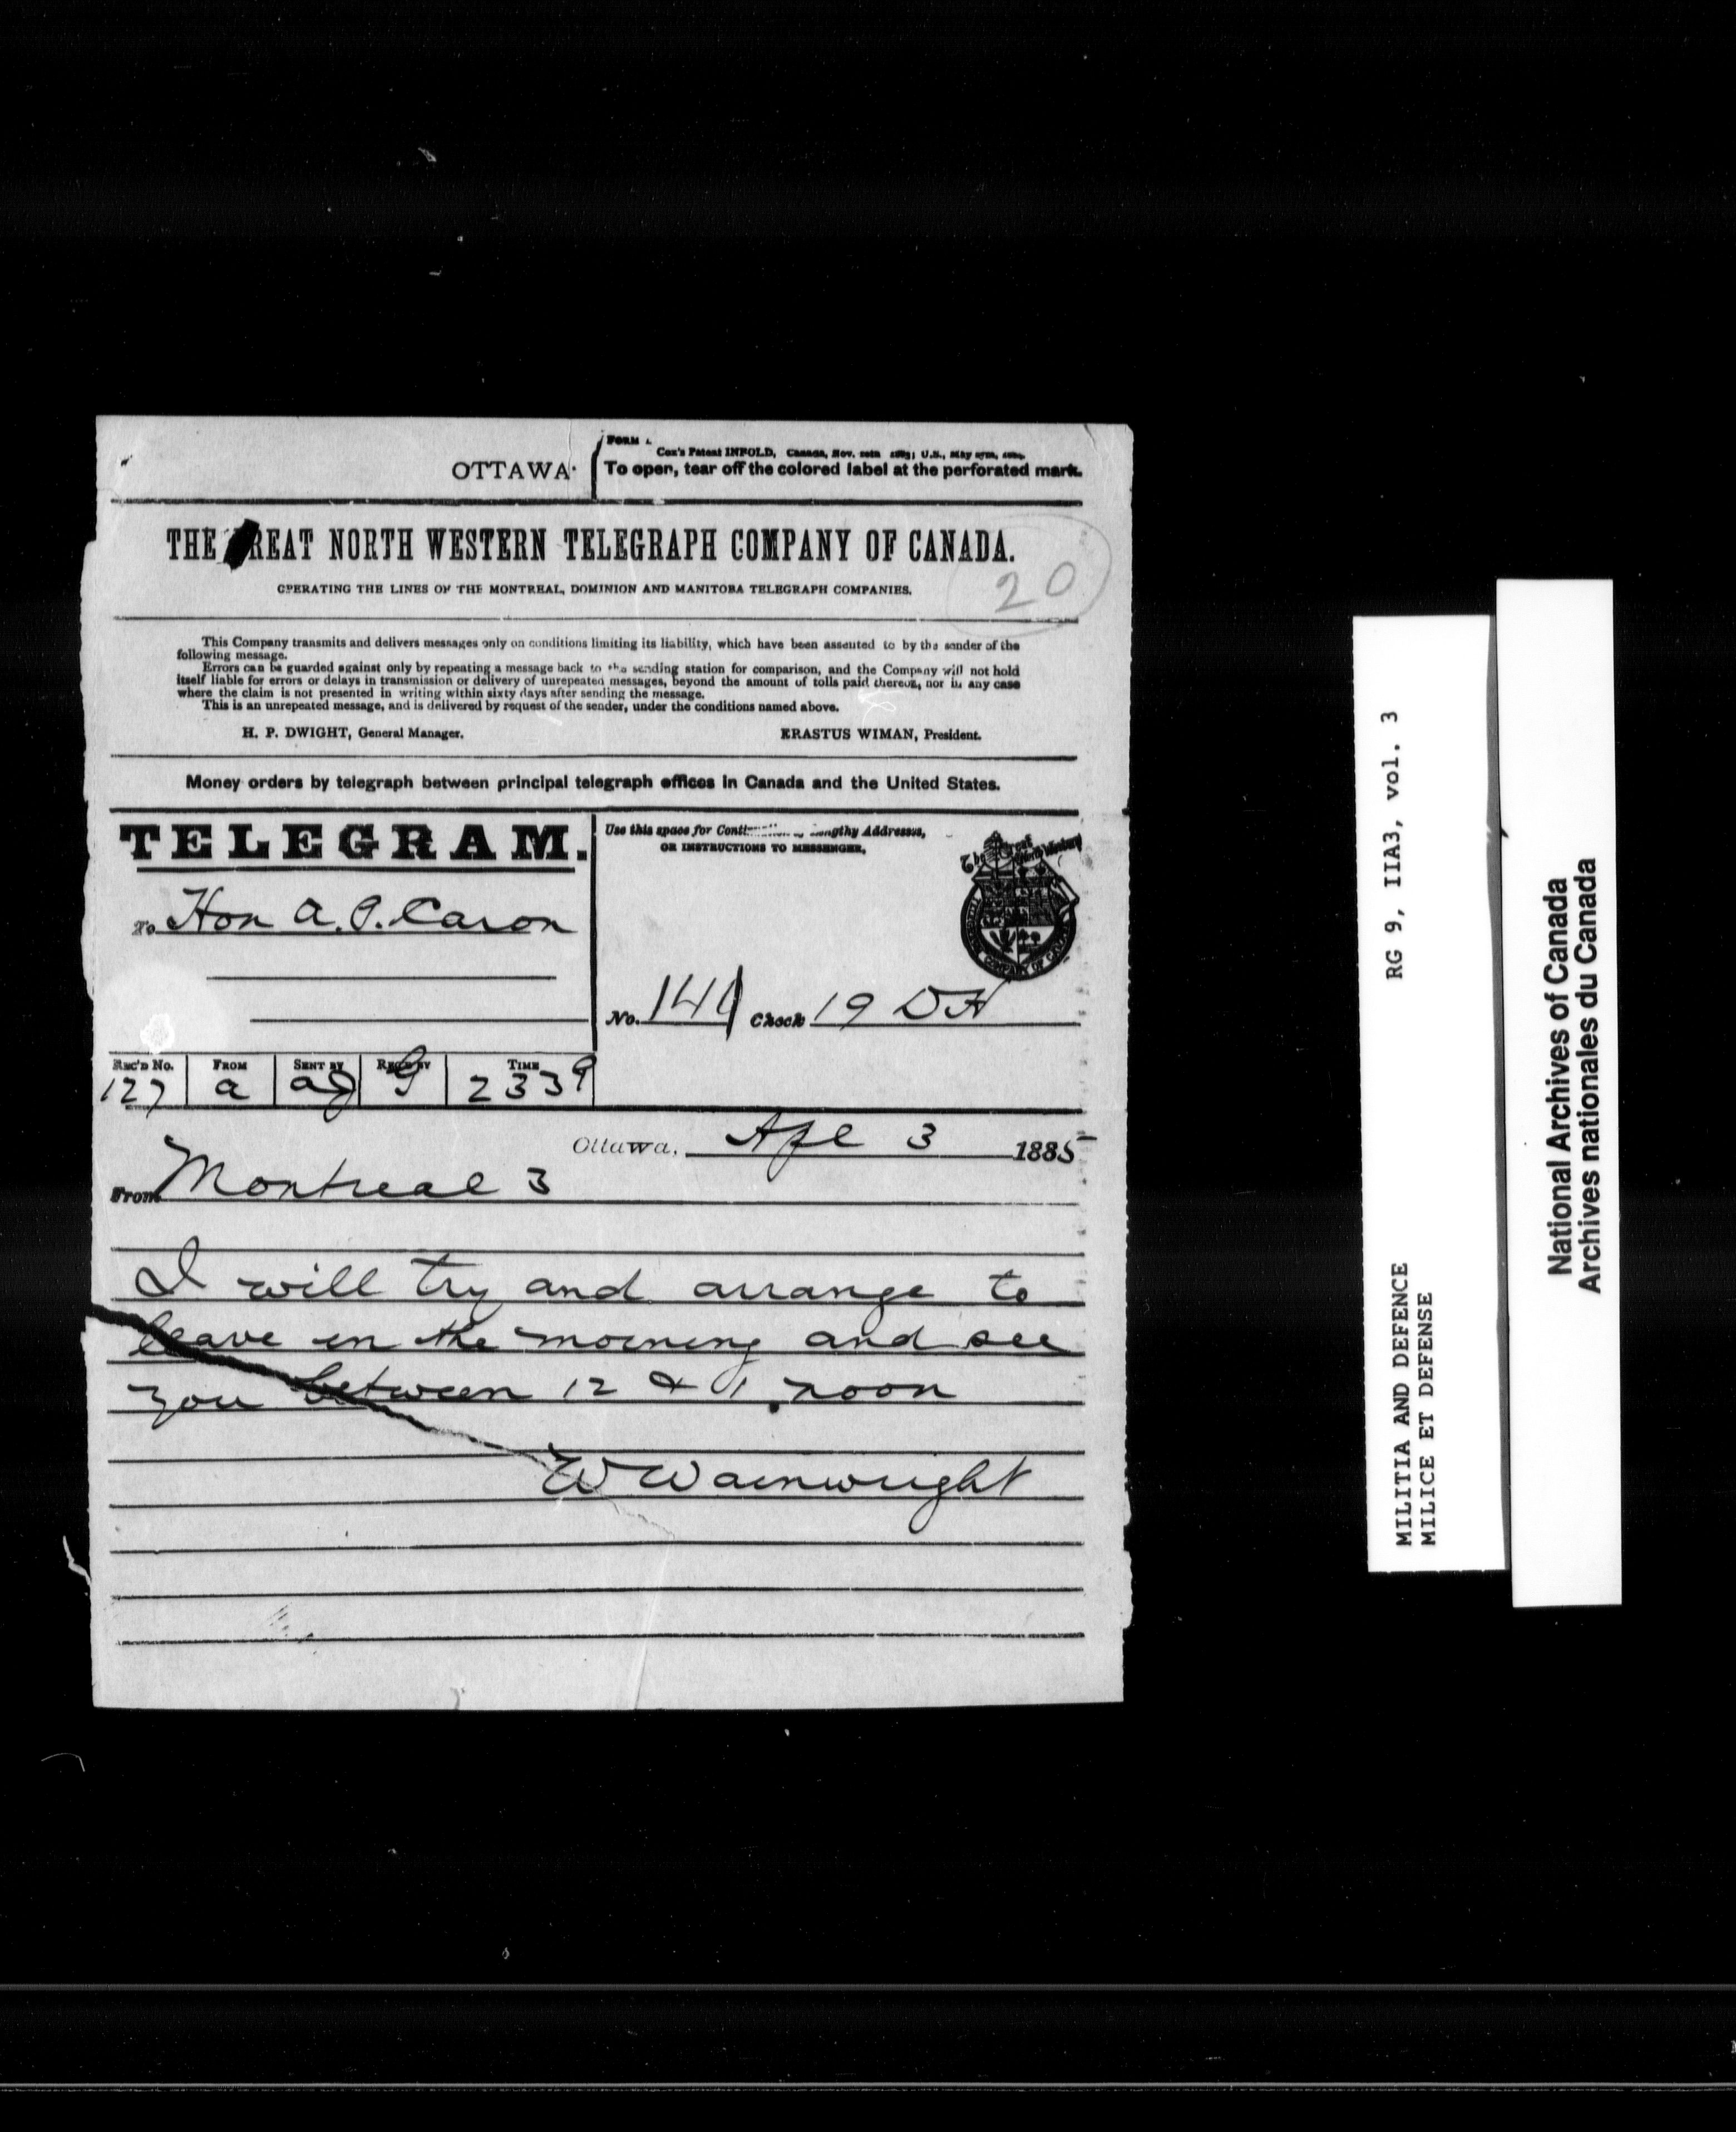 OTTAWA
FORM
Cox's Patent INFOLD, Canada, Nov. 20th 1883; U.S., May
To open, tear off the colored label at the perforated mark.
THE GREAT NORTH WESTERN TELEGRAPH COMPANY OF CANADA.
20
OPERATING THE LINES OF THE MONTREAL, DOMINION AND MANITOBA TELEGRAPH COMPANIES.
This Company transmits and delivers messages only on conditions limiting its liability, which have been assented to by the sender of the
following message.
Errors can be guarded against only by repeating a message back to the sending station for comparison, and the Company will not hold
itself liable for errors or delays in transmission or delivery of unrepeated messages, beyond the amount of tolls paid thereon, nor in any case
where the claim is not presented in writing within sixty days after sending the message.
This is an unrepeated message, and is delivered by request of the sender, under the conditions named above.
H. P. DWIGHT, General Manager.
ERASTUS WIMAN, President.
Money orders by telegraph between principal telegraph offices in Canada and the United States.
TELEGRAM.
Use this space for Lengthy Addresses,
OR INSTRUCTIONS TO MESSENGER.
The Great North Western
To Hon A. P. Caron
No. Check 19 DH
REC'D No. FROM SENT BY REC'D BY TIME
127 a 233
Ottawa, Apl 3 1885
From Montreal 3
I will try and arrange to
leave in the morning and see
you between 12 & 1 noon
W Wainwright
RG 9, IIA3, vol. 3
MILITIA AND DEFENCE
MILICE ET DEFENSE
National Archives of Canada
Archives nationales du Canada